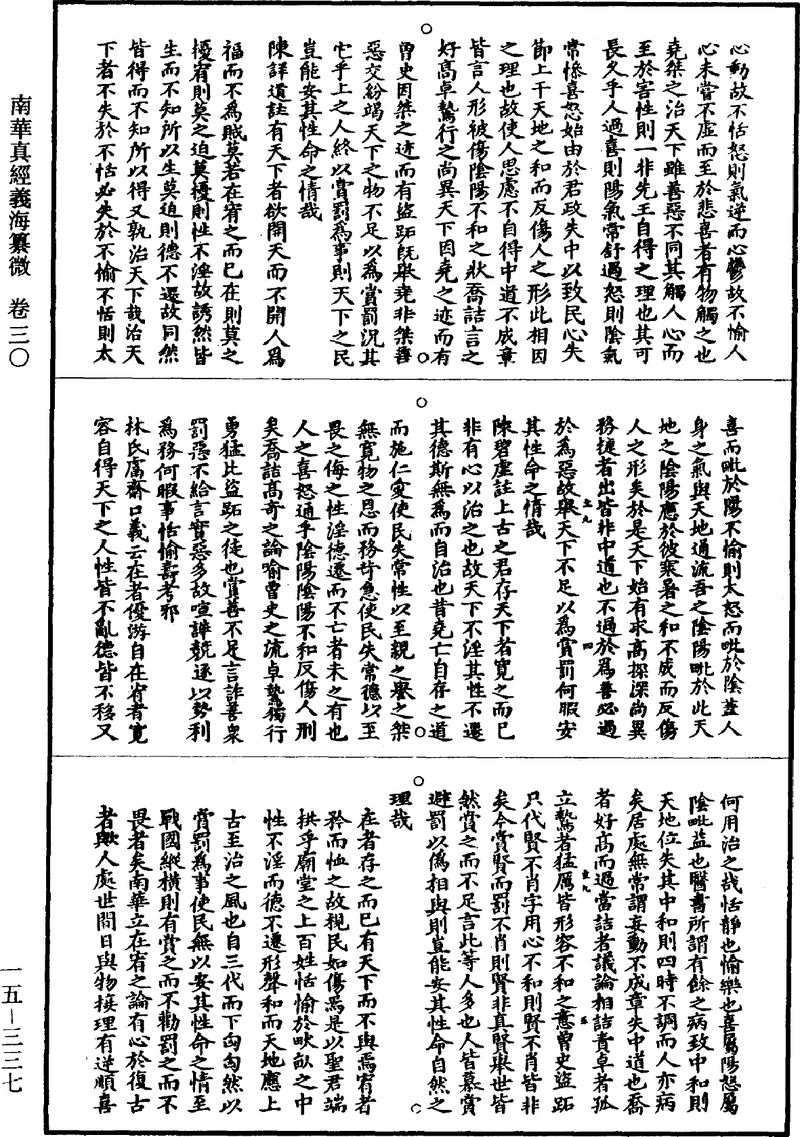 南華真經義海纂微 卷三〇
一五－三三七
心動故不恬怒則氣逆而心鬱故不愉人
心未嘗不虛而至於悲喜者有物觸之也
堯桀之治天下雖善惡不同其觸人心而
至於害性則一非先王自得之理也其可
長久乎人過喜則陽氣常舒過怒則陰氣
常慘喜怒始由於君政失中以致民心失
節上干天地之和而反傷人之形此相因
之理也故使人思慮不自得中道不成章
皆言人形被傷陰陽不和之狀喬詰言之
好高卓鷙行之尚異天下因堯之迹而有
曾史因桀之迹而有盜跖既譽堯非桀善
惡交紛竭天下之物不足以為賞罰況其
它乎上之人終以賞罰為事則天下之民
豈能安其性命之情哉
陳詳道註有天下者欲開天而不開人為
福而不為賊莫若在宥之而已在則莫之
擾宥則莫之迫莫擾則性不淫故誘然皆
生而不知所以生莫迫則德不遷故同然
皆得而不知所以得又孰治天下哉治天
下者不失於不恬必失於不愉不恬則太
喜而毗於陽不愉則太怒而毗於陰蓋人
身之氣與天地通流吾之陰陽毗於此天
地之陰陽應於彼寒暑之和不成而反傷
人之形矣於是天下始有求高探深尚異
務捷者出皆非中道也不過於為善必過
於為惡故舉天下不足以為賞罰何暇安
其性命之情哉
陳碧虛註上古之君存天下者寬之而已
非有心以治之也故天下不淫其性不遷
其德斯無為而自治也昔堯亡自存之道
而施仁愛使民失常性以至親之譽之桀
無寬物之恩而務苛急使民失常德以至
畏之侮之性淫德遷而不亡者未之有也
人之喜怒通乎陰陽陰陽不和反傷人刑
矣喬詰高奇之論喻曾史之流卓鷙獨行
勇猛比盜跖之徒也賞善不足言詐善眾
罰惡不給言實惡多故喧譁競逐以勢利
為務何暇事恬愉壽考邪
林氏鬳齋口義云在者優游自在宥者寬
容自得天下之人性皆不亂德皆不移又
何用治之哉恬靜也愉樂也喜屬陽怒屬
陰毗益也醫書所謂有餘之病致中和則
天地位失其中和則四時不調而人亦病
矣居處無常謂妄動不成章失中道也喬
者好高而過當詰者議論相詰責卓者孤
立鷙者猛厲皆形容不和之意曾史盜跖
只代賢不肖字用心不和則賢不肖皆非
矣今賞賢而罰不肖則賢非真賢舉世皆
然賞之而不足言此等人多也人皆慕賞
避罰以偽相與則豈能安其性命自然之
理哉
在者存之而已有天下而不與焉宥者
矜而恤之故視民如傷焉是以聖君端
拱乎廟堂之上百姓恬愉於畎畝之中
性不淫而德不遷形聲和而天地應上
古至治之風也自三代而下匈匈然以
賞罰為事使民無以安其性命之情至
戰國縱橫則有賞之而不勸罰之而不
畏者矣南華立在宥之論有心於復古
者歟人處世間日與物接理有逆順喜